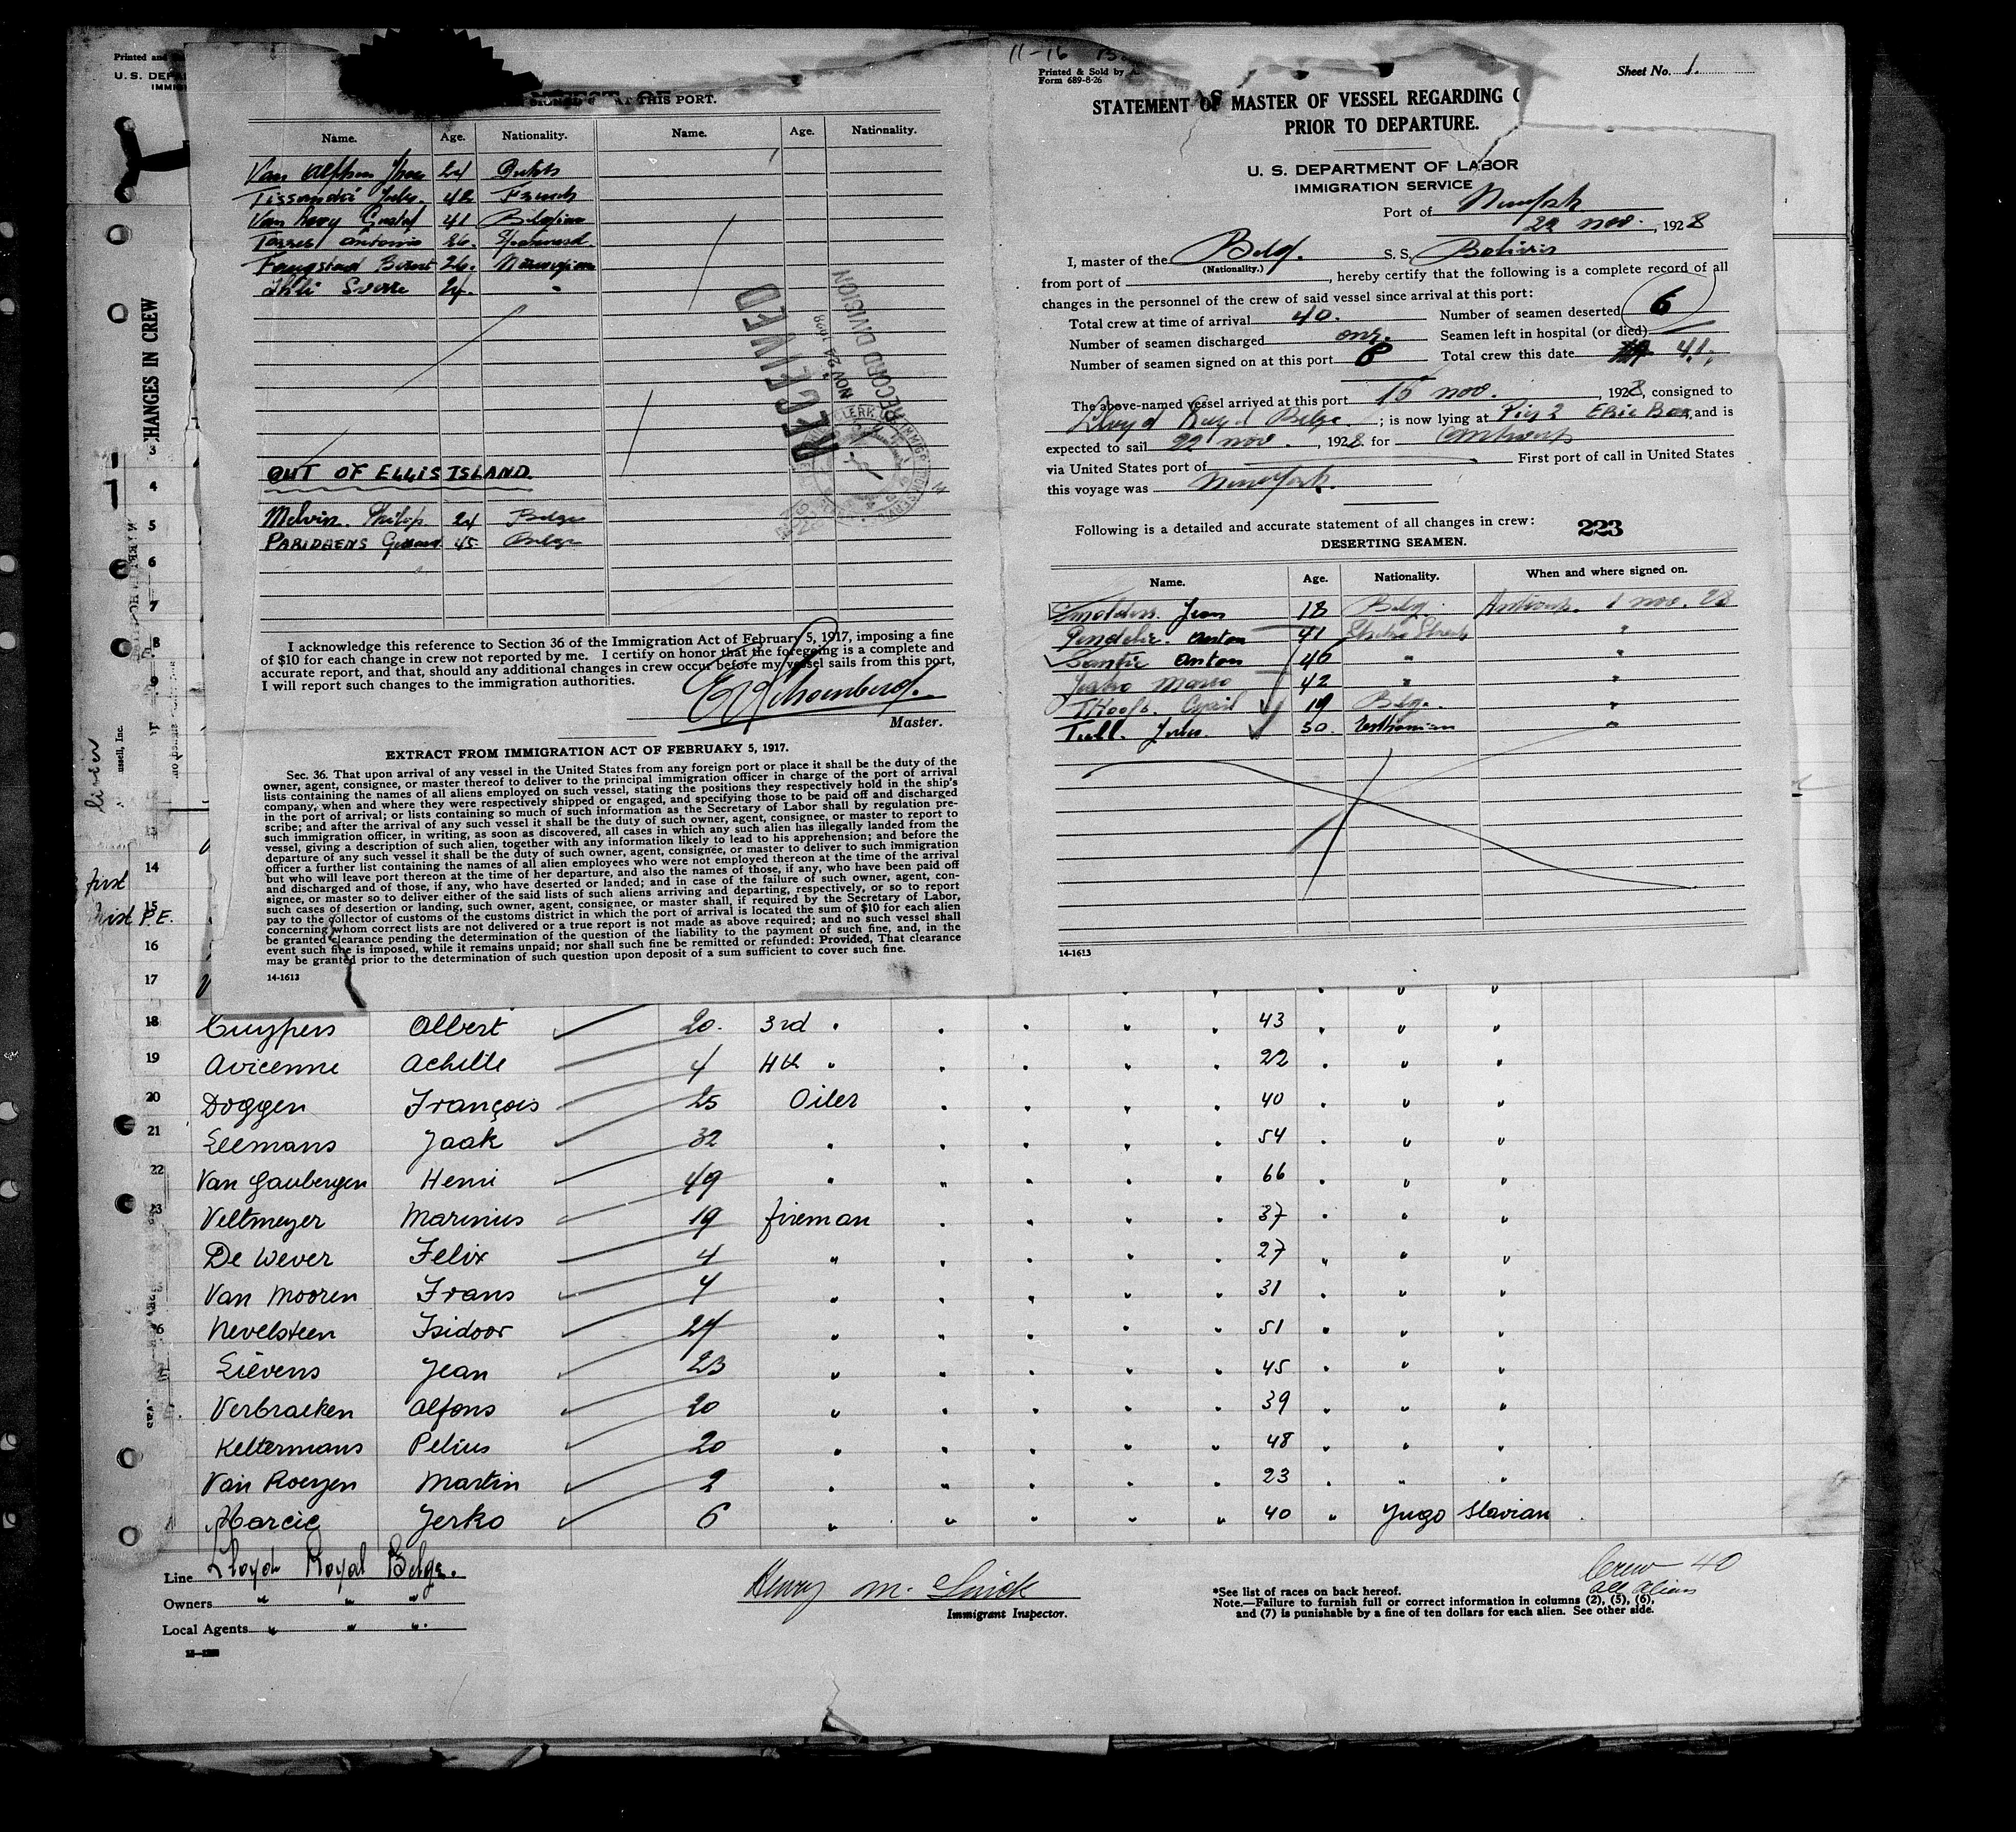 Printed and
U. S. DEPA
IMMIG
CHANGES IN CREW
SIGNED AT THIS PORT.
Name. Age. Nationality. Name. Age. Nationality.
Van 24 Dutch
42 French
Van Looy Gustaf 41 Belgian
Torres Antonio 26. Spaniard.
Fougstad 26. Norwegian
24. "
RECEIVED
NOV 24 1928
RECORD DIVISION
OUT OF ELLIS ISLAND
Melvin. Philip 24 Belge
PARIDAENS 45 Belge
I acknowledge this reference to Section 36 of the Immigration Act of February 5, 1917, imposing a fine
of $10 for each change in crew not reported by me. I certify on honor that the foregoing is a complete and
accurate report, and that, should any additional changes in crew occur before my vessel sails from this port,
I will report such changes to the immigration authorities.
Master.
EXTRACT FROM IMMIGRATION ACT OF FEBRUARY 5, 1917.
Sec. 36. That upon arrival of any vessel in the United States from any foreign port or place it shall be the duty of the
owner, agent, consignee, or master thereof to deliver to the principal immigration officer in charge of the port of arrival
lists containing the names of all aliens employed on such vessel, stating the positions they respectively hold in the ship's
company, when and where they were respectively shipped or engaged, and specifying those to be paid off and discharged
in the port of arrival; or lists containing so much of such information as the Secretary of Labor shall by regulation pre-
scribe; and after the arrival of any such vessel it shall be the duty of such owner, agent, consignee, or master to report to
such immigration officer, in writing, as soon as discovered, all cases in which any such alien has illegally landed from the
vessel, giving a description of such alien, together with any information likely to lead to his apprehension; and before the
departure of any such vessel it shall be the duty of such owner, agent, consignee, or master to deliver to such immigration
officer a further list containing the names of all alien employees who were not employed thereon at the time of the arrival
but who will leave port thereon at the time of her departure, and also the names of those, if any, who have been paid off
and discharged and of those, if any, who have deserted or landed; and in case of the failure of such owner, agent, con-
signee, or master so to deliver either of the said lists of such aliens arriving and departing, respectively, or so to report
such cases of desertion or landing, such owner, agent, consignee, or master shall, if required by the Secretary of Labor,
pay to the collector of customs of the customs district in which the port of arrival is located the sum of $10 for each alien
concerning whom correct lists are not delivered or a true report is not made as above required; and no such vessel shall
be granted clearance pending the determination of the question of the liability to the payment of such fine, and, in the
event such fine is imposed, while it remains unpaid; nor shall such fine be remitted or refunded: Provided, That clearance
may be granted prior to the determination of such question upon deposit of a sum sufficient to cover such fine.
14-1613
11-16
Printed & Sold by
Form 689-8-26
Sheet No. 1.
STATEMENT OF MASTER OF VESSEL REGARDING C
PRIOR TO DEPARTURE.
U. S. DEPARTMENT OF LABOR
IMMIGRATION SERVICE
Port of New York
22 nov. , 1928
I, master of the Belg. S. S. Bolivier
(Nationality.)
from port of , hereby certify that the following is a complete record of all
changes in the personnel of the crew of said vessel since arrival at this port:
Total crew at time of arrival 40. Number of seamen deserted 6
Number of seamen discharged one. Seamen left in hospital (or died)
Number of seamen signed on at this port 8 Total crew this date 41.
The above-named vessel arrived at this port 16 nov. , 1928, consigned to
Lloyd Royal Belge. ; is now lying at Pier 2 Erie Bas, and is
expected to sail 22 nov. , 1928 for Antwerp
via United States port of First port of call in United States
this voyage was New York.
Following is a detailed and accurate statement of all changes in crew: 223
DESERTING SEAMEN.
Name. Age. Nationality. When and where signed on.
Smolders. Jean 18 Belg. Antwerp. 1 nov. 28
Anton 41 "
Anton 46 " "
42 " "
19 Belg. "
Tull. 30. Esthonian "
14-1613
14
15
16
17
18 Cuypers Albert 20. 3rd " " " " " 43 " " "
19 Avicenne Achille 4 4th " " " " " 22 " " "
20 Doggen François 25 Oiler " " " " 40 " " "
21 Leemans Jaak 32 " " " " " 54 " " "
22 Van Gaubergen Henri 49 " " " " " 66 " " "
Veltmeyer Marinus 19 fireman " " " " 37 " " "
De Wever Felix 4 " " " " " 27 " " "
Van Mooren Frans 4 " " " " " 31 " " "
Nevelsteen Isidoor 24 " " " " " 51 " " "
Lievens Jean 23 " " " " " 45 " " "
Verbraeken Alfons 20 " " " " " 39 " " "
Keltermans Pelius 20 " " " " " 48 " " "
Van Roeyen Martin 2 " " " " " 23 " " "
Harcic Jerko 6 " " " " " 40 " Yugo Slavian
Line Lloyd Royal Belge.
Owners " " "
Local Agents " " "
Henry M.
Immigrant Inspector.
Crew 40
all aliens
*See list of races on back hereof.
Note.—Failure to furnish full or correct information in columns (2), (5), (6),
and (7) is punishable by a fine of ten dollars for each alien. See other side.